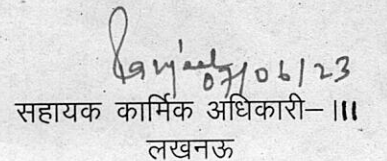 07/06/23
सहायक कार्मिक अधिकारी–III
लखनऊ